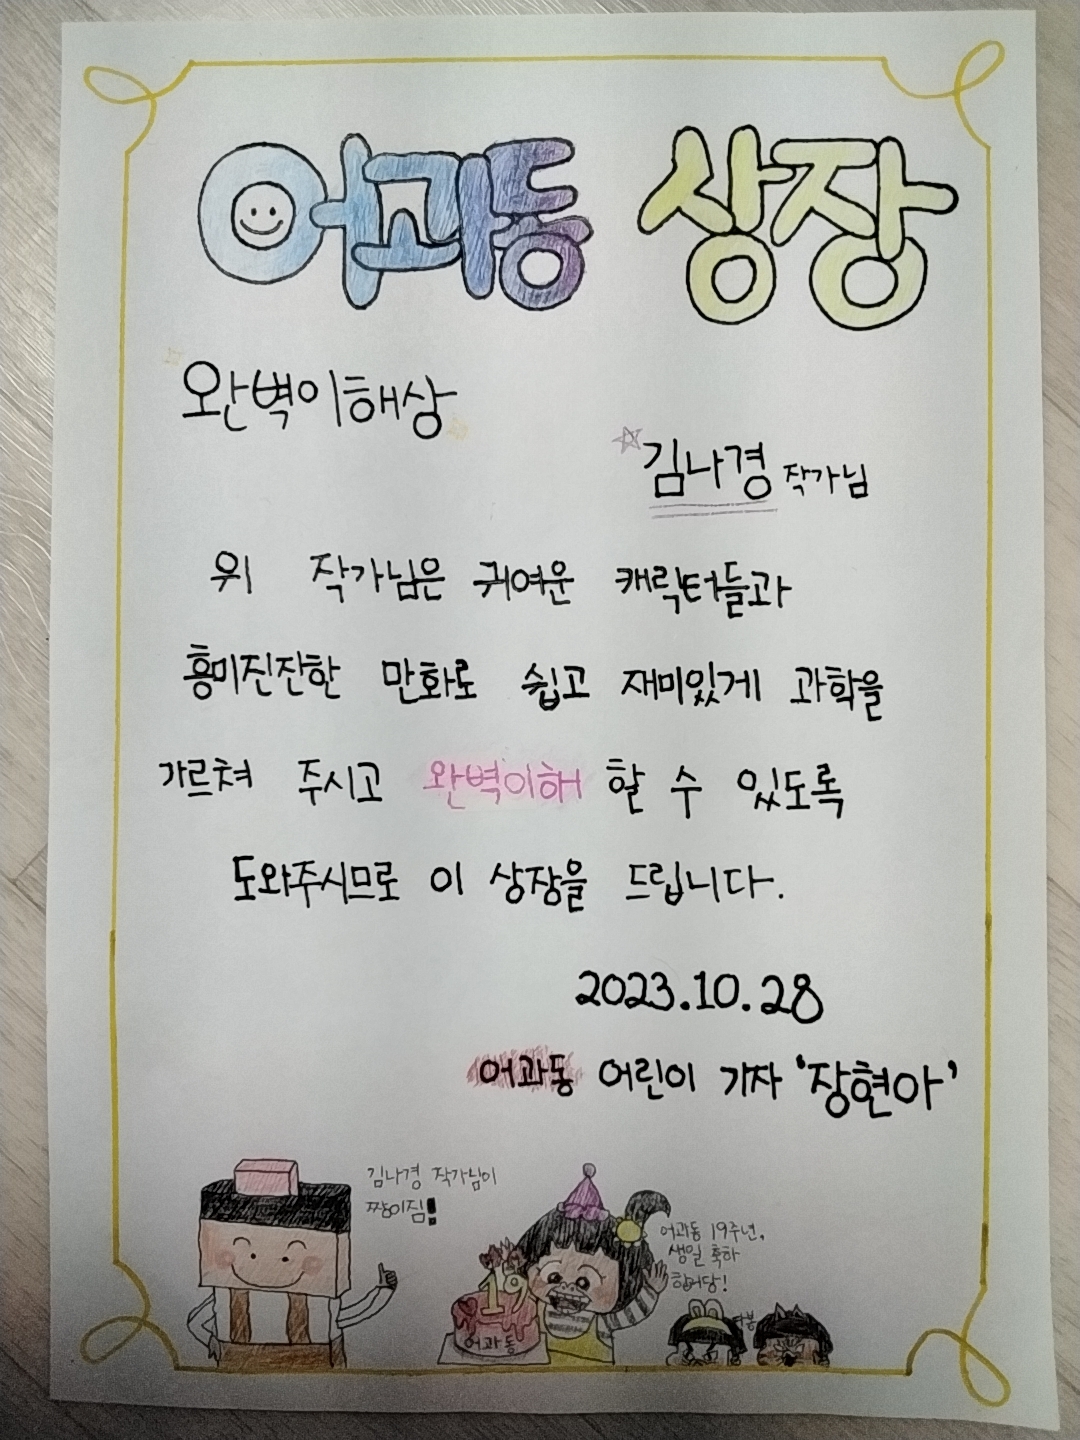 어과동 상장
완벽이해상
김나경 작가님
위 작가님은 귀여운 캐릭터들과
흥미진진한 만화로 쉽고 재미있게 과학을
가르쳐 주시고 완벽이해 할 수 있도록
도와주시므로 이 상장을 드립니다.
2023.10.28
어과동 어린이 기자 '장현아'
김나경 작가님이
짱이짐!
어과동 19주년,
생일 축하
합니당!
19
어과동